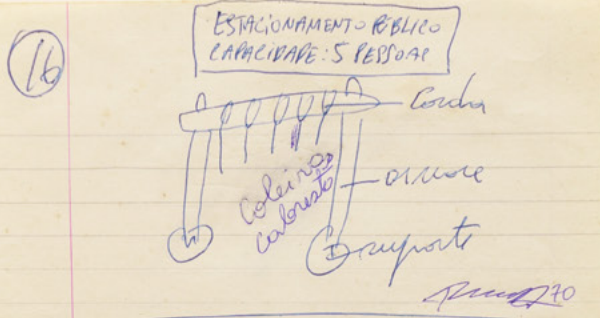 16
ESTACIONAMENTO PÚBLICO
CAPACIDADE: 5 PESSOAS
Corda
Coleira
cabresto
suporte
70